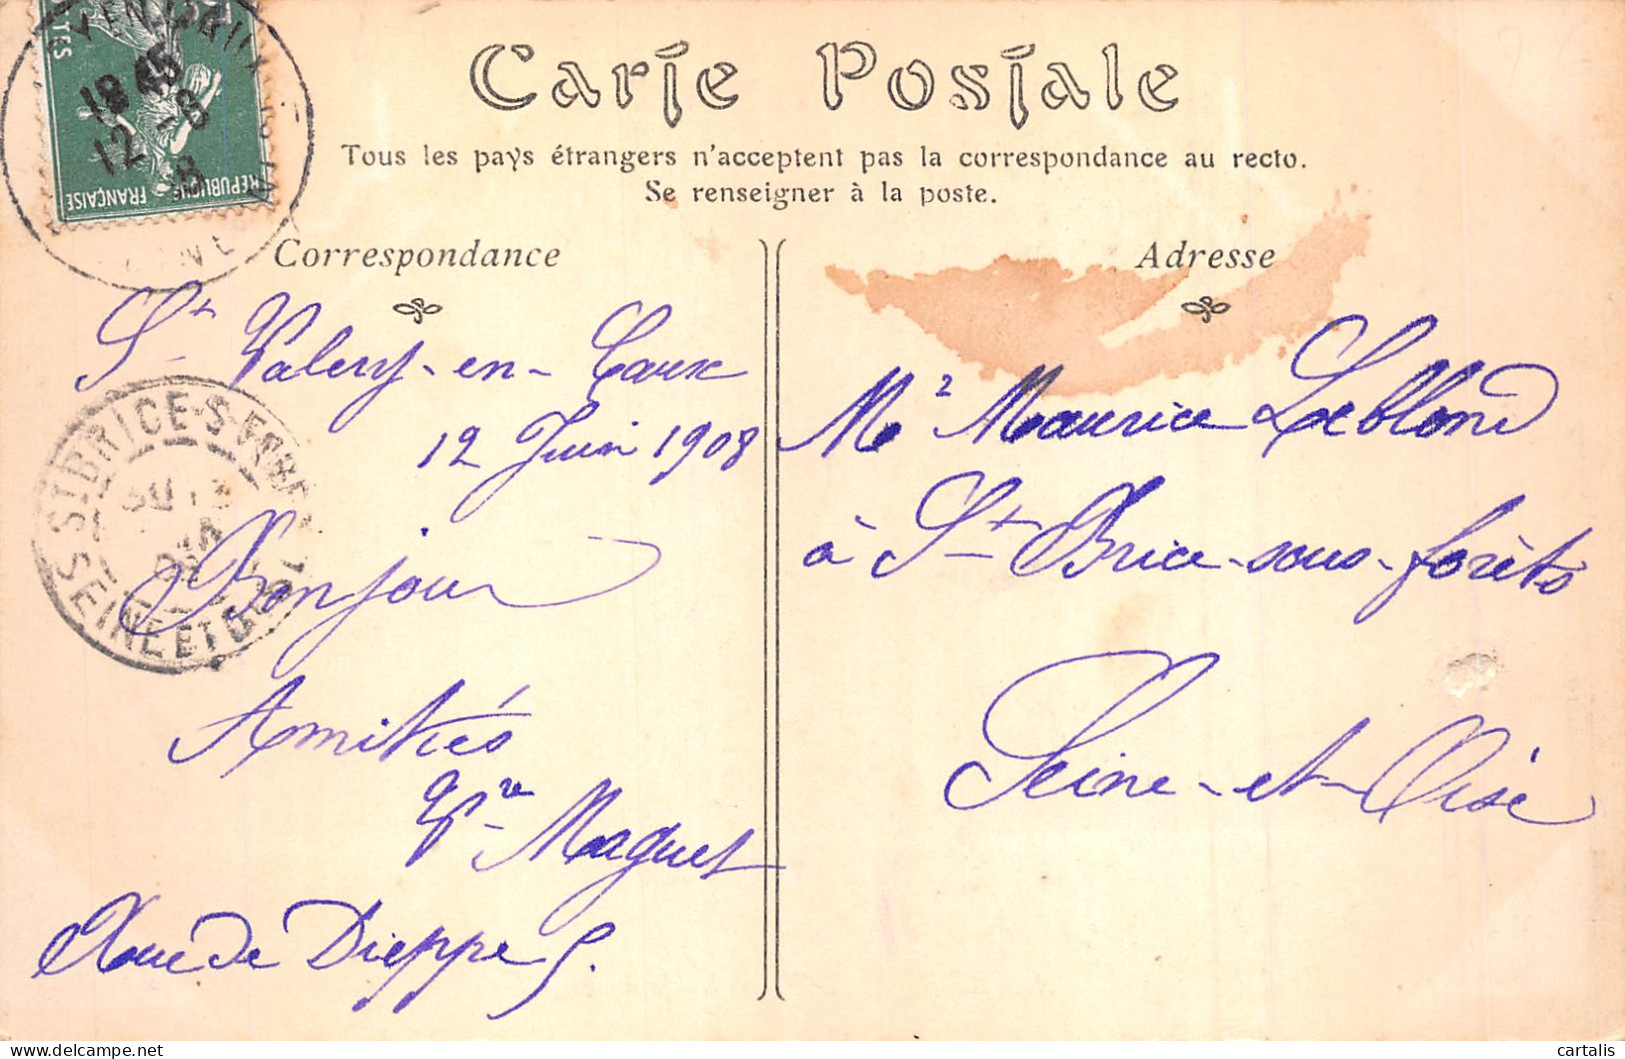 Carte Postale
Tous les pays étrangers n'acceptent pas la correspondance au recto.
Se renseigner à la poste.
RÉPUBLIQUE FRANÇAISE
18 45
12 - 8
8
Correspondance
St Valery-en-Caux
12 Juin 1908
Bonjour
Amitiés
Vve Maguet
Rue de Dieppe 5.
ST BRICE-S-FORET
SEINE ET OISE
Adresse
Mr Maurice Leblond
à St Brice-sous-forêts
Seine-et-Oise
cartalis